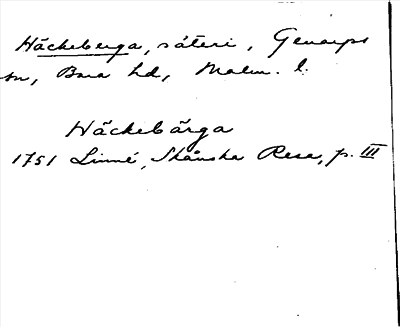 Häckeberga, säteri, Genarps
sn, Bara hd, Malm. l.
Häckebärga
1751 Linné, Skånska Resa, p. III